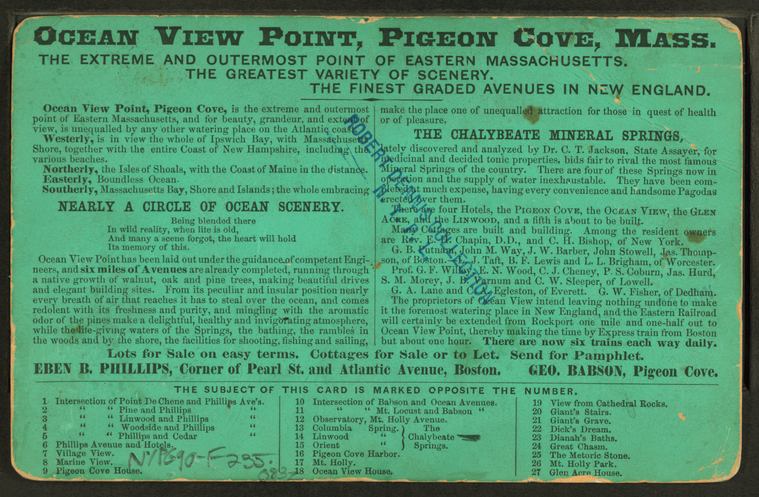 OCEAN VIEW POINT, PIGEON COVE, MASS.
THE EXTREME AND OUTERMOST POINT OF EASTERN MASSACHUSETTS.
THE GREATEST VARIETY OF SCENERY.
THE FINEST GRADED AVENUES IN NEW ENGLAND.
Ocean View Point, Pigeon Cove, is the extreme and outermost
point of Eastern Massachusetts, and for beauty, grandeur, and extent of
view, is unequalled by any other watering place on the Atlantic coast.
Westerly, is in view the whole of Ipswich Bay, with Massachusetts
Shore, together with the entire Coast of New Hampshire, including
various beaches.
Northerly, the Isles of Shoals, with the Coast of Maine in the distance.
Easterly, Boundless Ocean.
Southerly, Massachusetts Bay, Shore and Islands; the whole embracing
NEARLY A CIRCLE OF OCEAN SCENERY.
Being blended there
In wild reality, when life is old,
And many a scene forgot, the heart will hold
Its memory of this.
Ocean View Point has been laid out under the guidance of competent Engi-
neers, and six miles of Avenues are already completed, running through
a native growth of walnut, oak and pine trees, making beautiful drives
and elegant building sites. From its peculiar and insular position nearly
every breath of air that reaches it has to steal over the ocean, and comes
redolent with its freshness and purity, and mingling with the aromatic
odor of the pines make a delightful, healthy and invigorating atmosphere,
while the life-giving waters of the Springs, the bathing, the rambles in
the woods and by the shore, the facilities for shooting, fishing and sailing,
make the place one of unequalled attraction for those in quest of health
or of pleasure.
THE CHALYBEATE MINERAL SPRINGS,
lately discovered and analyzed by Dr. C. T. Jackson, State Assayer, for
medicinal and decided tonic properties, bids fair to rival the most famous
Mineral Springs of the country. There are four of these Springs now in
operation and the supply of water inexhaustable. They have been com-
pleted at much expense, having every convenience and handsome Pagodas
erected over them.
There are four Hotels, the PIGEON COVE, the OCEAN VIEW, the GLEN
ACRE, and the LINWOOD, and a fifth is about to be built.
Many Cottages are built and building. Among the resident owners
are Rev. E. H. Chapin, D.D., and C. H. Bishop, of New York.
G. B. Putnam, John M. Way, J. W. Barber, John Stowell, Jas. Thomp-
son, of Boston. J. Taft, B. F. Lewis and L. L. Brigham, of Worcester.
Prof. G. F. Wilde, E. N. Wood, C. J. Cheney, P. S. Coburn, Jas. Hurd,
S. M. Morey, J. B. Varnum and C. W. Sleeper, of Lowell.
G. A. Lane and C. C. Egleston, of Everett. G. W. Fisher, of Dedham.
The proprietors of Ocean View intend leaving nothing undone to make
it the foremost watering place in New England, and the Eastern Railroad
will certainly be extended from Rockport one mile and one-half out to
Ocean View Point, thereby making the time by Express train from Boston
but about one hour. There are now six trains each way daily.
Lots for Sale on easy terms. Cottages for Sale or to Let. Send for Pamphlet.
EBEN B. PHILLIPS, Corner of Pearl St. and Atlantic Avenue, Boston. GEO. BABSON, Pigeon Cove.
THE SUBJECT OF THIS CARD IS MARKED OPPOSITE THE NUMBER.
1 Intersection of Point De Chene and Phillips Ave's.
2 " " Pine and Phillips "
3 " " Linwood and Phillips "
4 " " Woodside and Phillips "
5 " " Phillips and Cedar "
6 Phillips Avenue and Hotels.
7 Village View.
8 Marine View.
9 Pigeon Cove House.
10 Intersection of Babson and Ocean Avenues.
11 " " Mt. Locust and Babson "
12 Observatory, Mt. Holly Avenue.
13 Columbia Spring. } The
14 Linwood " } Chalybeate
15 Orient " } Springs.
16 Pigeon Cove Harbor.
17 Mt. Holly.
18 Ocean View House.
19 View from Cathedral Rocks.
20 Giant's Stairs.
21 Giant's Grave.
22 Dick's Dream.
23 Dianah's Baths.
24 Great Chasm.
25 The Metoric Stone.
26 Mt. Holly Park.
27 Glen Acre House.
ROBERT DENNIS COLLECTION